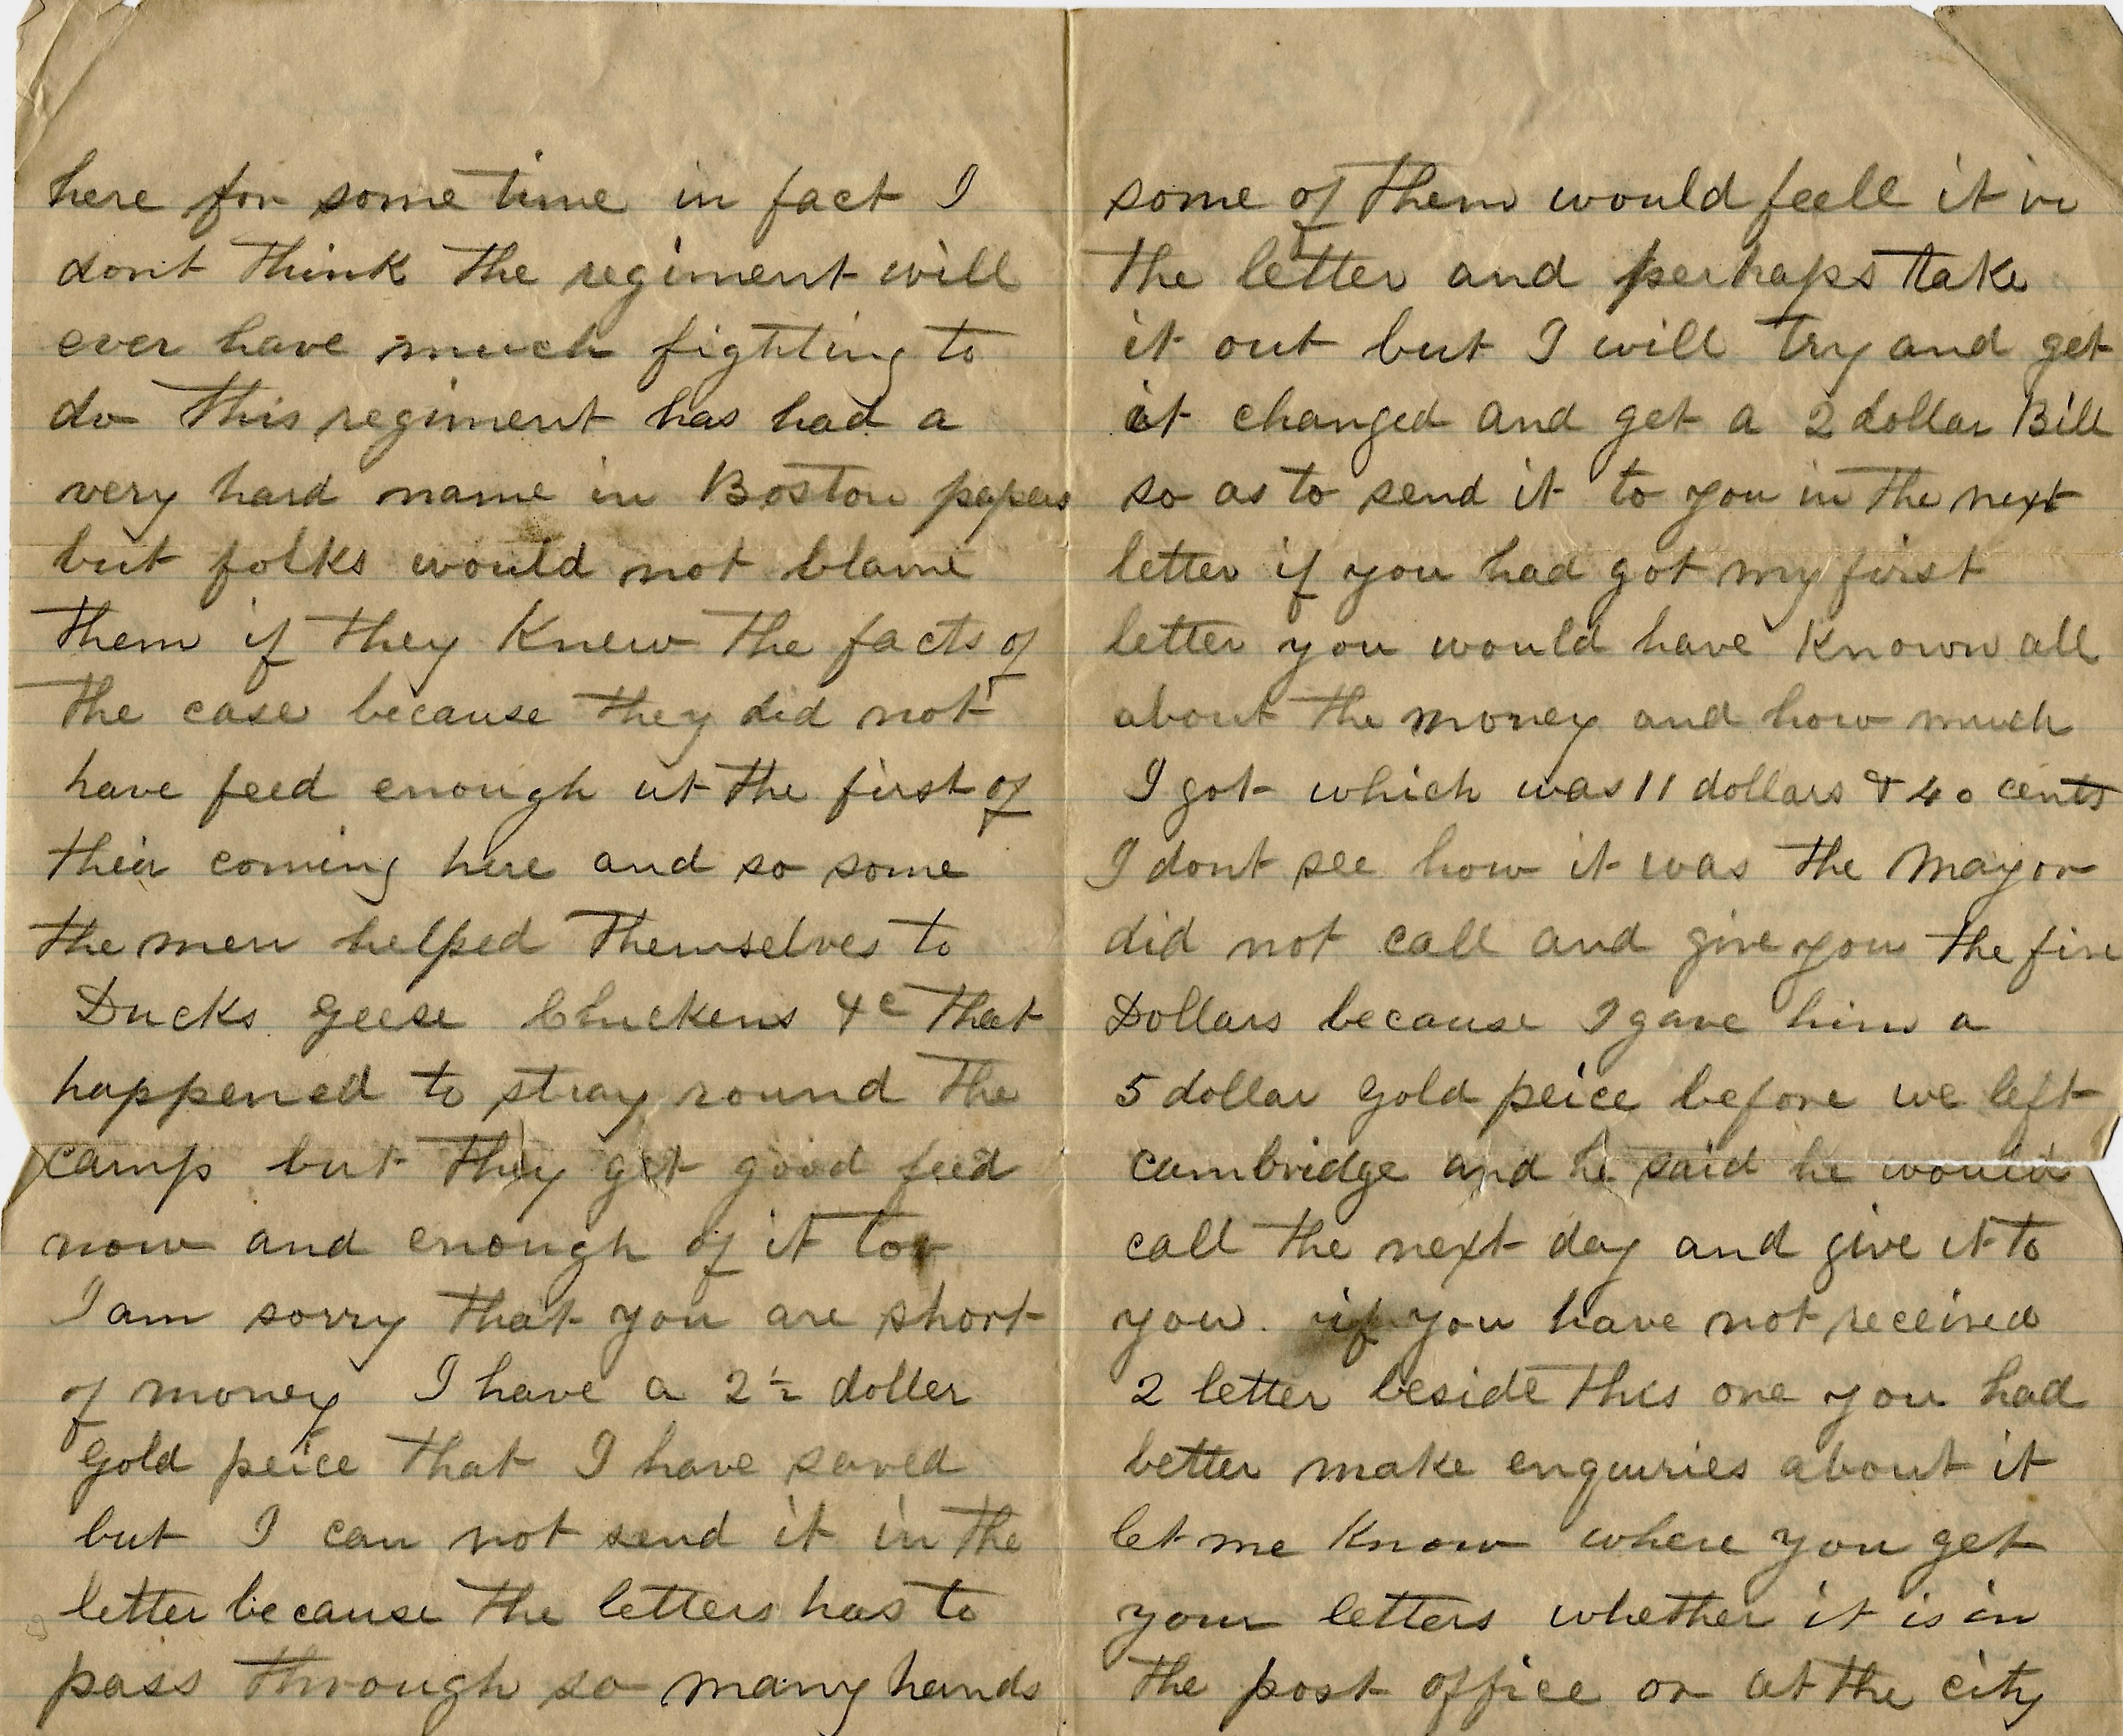 here for some time in fact I
dont think the regiment will
ever have much fighting to
do this regiment has had a
very hard name in Boston papers
but folks would not blame
them if they knew the facts of
the case because they did not
have feed enough at the first of
their coming here and so some
the men helped themselves to
Ducks geese Chickens &c that
happened to stray round the
camp but they get good feed
now and enough of it too
I am sorry that you are short
of money I have a 2½ doller
gold peice that I have saved
but I can not send it in the
letter because the letters has to
pass through so many hands
some of them would feell it in
the letter and perhaps take
it out but I will try and get
it changed and get a 2 dollar Bill
so as to send it to you in the next
letter if you had got my first
letter you would have known all
about the money and how much
I got which was 11 dollars & 40 cents
I dont see how it was the Mayor
did not call and give you the five
Dollars because I gave him a
5 dollar gold peice before we left
cambridge and he said he would
call the next day and give it to
you. if you have not received
2 letter beside this one you had
better make enquiries about it
let me know where you get
your letters whether it is in
the post office or at the city